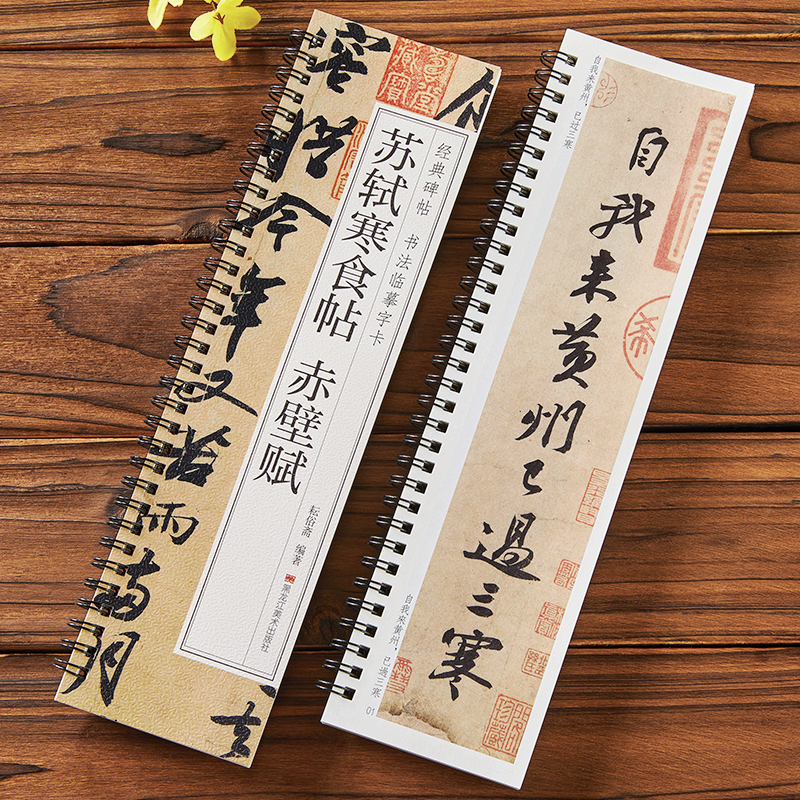 容惜今年又苦雨两月
经典碑帖 书法临摹字卡
苏轼寒食帖 赤壁赋
耘俗斋 编著
黑龙江美术出版社
自我来黄州，已过三寒
自我来黄州已過三寒
自我來黃州，已過三寒
01